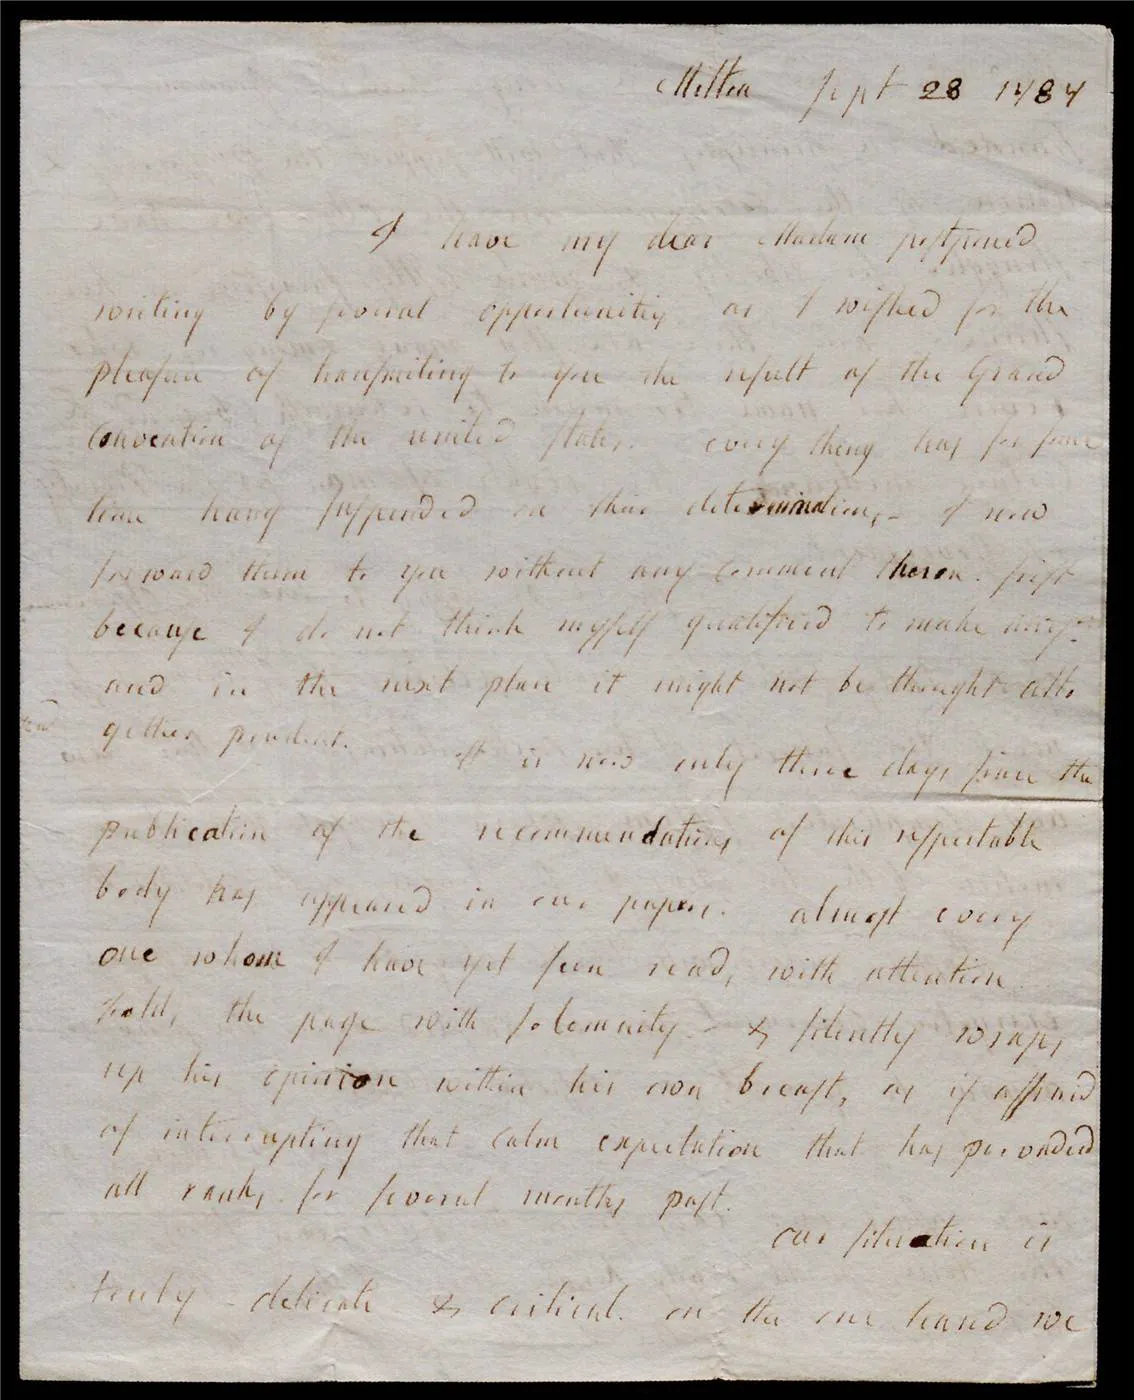 Milton Sept 28 1787
I have my dear Madam postponed
writing by several opportunities as I wished for the
pleasure of transmiting to you the result of the Grand
Convention of the united states. every thing has for some
time hung suspended on their determinations, - I now
forward them to you without any Comment thereon. first
because I do not think myself qualified to make any -
and in the next place it might not be thought alto
gether prudent. It is now only three days since the
publication of the recommendations of this respectable
body has appeared in our papers. almost every
one whom I have yet seen reads, with attention
folds, the page with solemnity - & silently wraps
up his opinion within his own breast, as if affraid
of interrupting that calm expectation that has pervaded
all ranks for several months past.
our situation is
truly - delicate & critical. on the one hand we